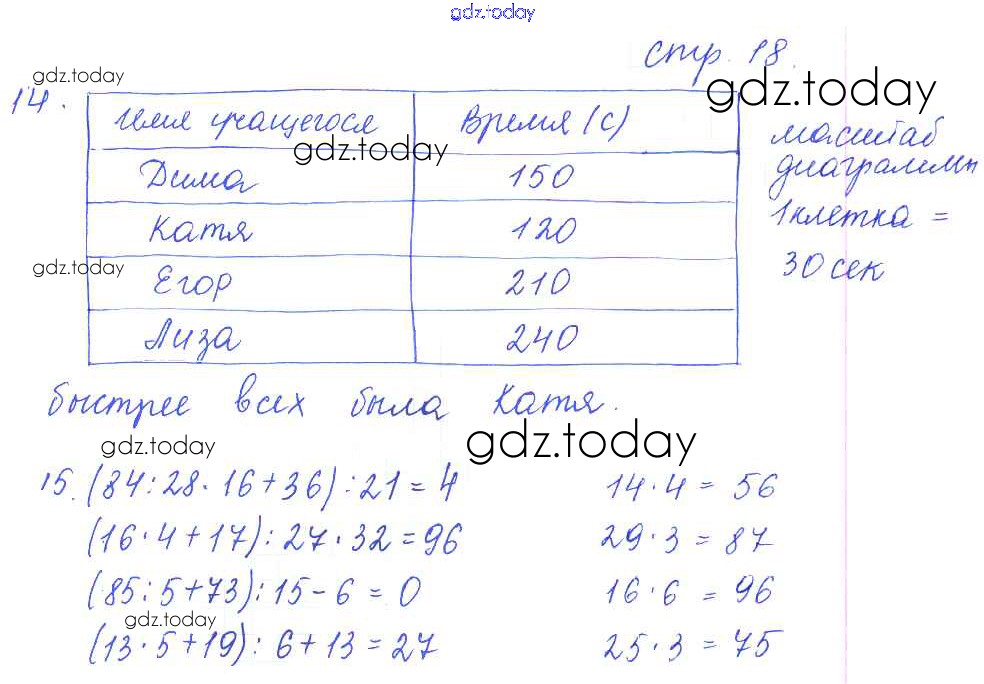 gdz.today
стр. 18.
gdz.today
gdz.today
14.
Имя учащегося Время (с)
gdz.today
Дима 150
Катя 120
gdz.today
Егор 210
Лиза 240
масштаб
диаграммы
1клетка =
30 сек
быстрее всех была Катя.
gdz.today
gdz.today
15. (84:28·16+36):21=4 14·4=56
(16·4+17):27·32=96 29·3=87
(85:5+73):15-6=0 16·6=96
gdz.today
(13·5+19):6+13=27 25·3=75